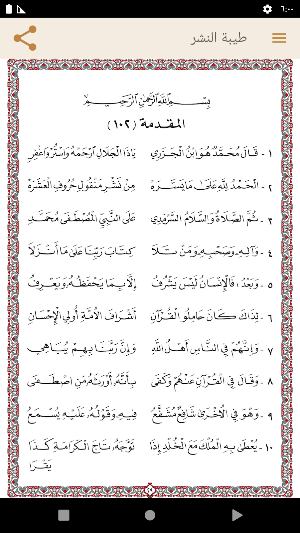 ٦:٠٠
طيبة النشر
بِسْمِ اللَّهِ الرَّحْمَٰنِ الرَّحِيمِ
المقدمة (١٠٢)
١ - قَالَ مُحَمَّدٌ هُوَ ابْنُ الْجَزَرِي يَا ذَا الْجَلَالِ ارْحَمْهُ وَاسْتُرْ وَاغْفِرِ
٢ - الْحَمْدُ لِلَّهِ عَلَى مَا يَسَّرَهْ مِنْ نَشْرِ مَنْقُولِ حُرُوفِ الْعَشَرَهْ
٣ - ثُمَّ الصَّلَاةُ وَالسَّلَامُ السَّرْمَدِي عَلَى النَّبِيِّ الْمُصْطَفَى مُحَمَّدِ
٤ - وَآلِهِ وَصَحْبِهِ وَمَنْ تَلَا كِتَابَ رَبِّنَا عَلَى مَا أَنْزَلَا
٥ - وَبَعْدُ، فَالْإِنْسَانُ لَيْسَ يَشْرُفُ إِلَّا بِمَا يَحْفَظُهُ وَيَعْرِفُ
٦ - لِذَاكَ كَانَ حَامِلُو الْقُرْآنِ أَشْرَافَ الْأُمَّةِ أُولِي الْإِحْسَانِ
٧ - وَإِنَّهُمْ فِي النَّاسِ أَهْلُ اللَّهِ وَإِنَّ رَبَّنَا بِهِمْ يُبَاهِي
٨ - وَقَالَ فِي الْقُرْآنِ عَنْهُمْ وَكَفَى بِأَنَّهُ، أَوْرَثَهُ مَنِ اصْطَفَى
٩ - وَهْوَ فِي الْأُخْرَى شَافِعٌ مُشَفَّعُ فِيهِ وَقَوْلُهُ، عَلَيْهِ يُسْمَعُ
١٠ - يُعْطَى بِهِ الْمُلْكَ مَعَ الْخُلْدِ إِذَا تَوَّجَهُ، تَاجَ الْكَرَامَةِ كَذَا
يَقْرَا